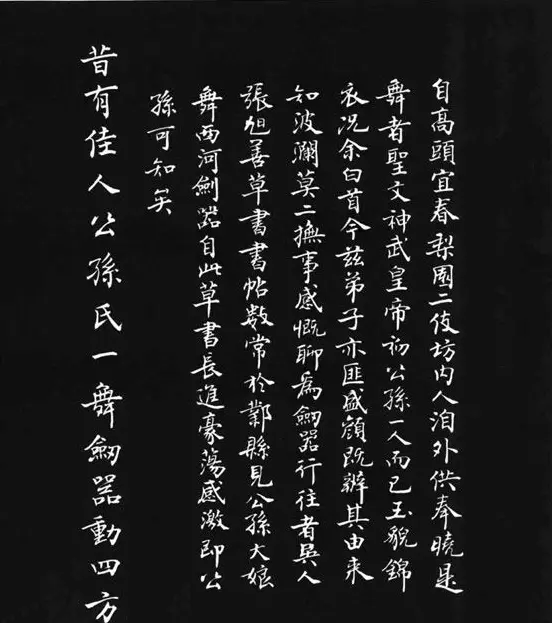 自高頭宜春梨園二伎坊内人洎外供奉曉是
舞者聖文神武皇帝初公孫一人而已玉貌錦
衣况余白首今兹弟子亦匪盛顔既辨其由来
知波瀾莫二撫事感慨聊爲劒器行往者吴人
張旭善草書書帖數常於鄴縣見公孫大娘
舞西河劍器自此草書長進豪蕩感激即公
孫可知矣
昔有佳人公孫氏一舞劒器動四方